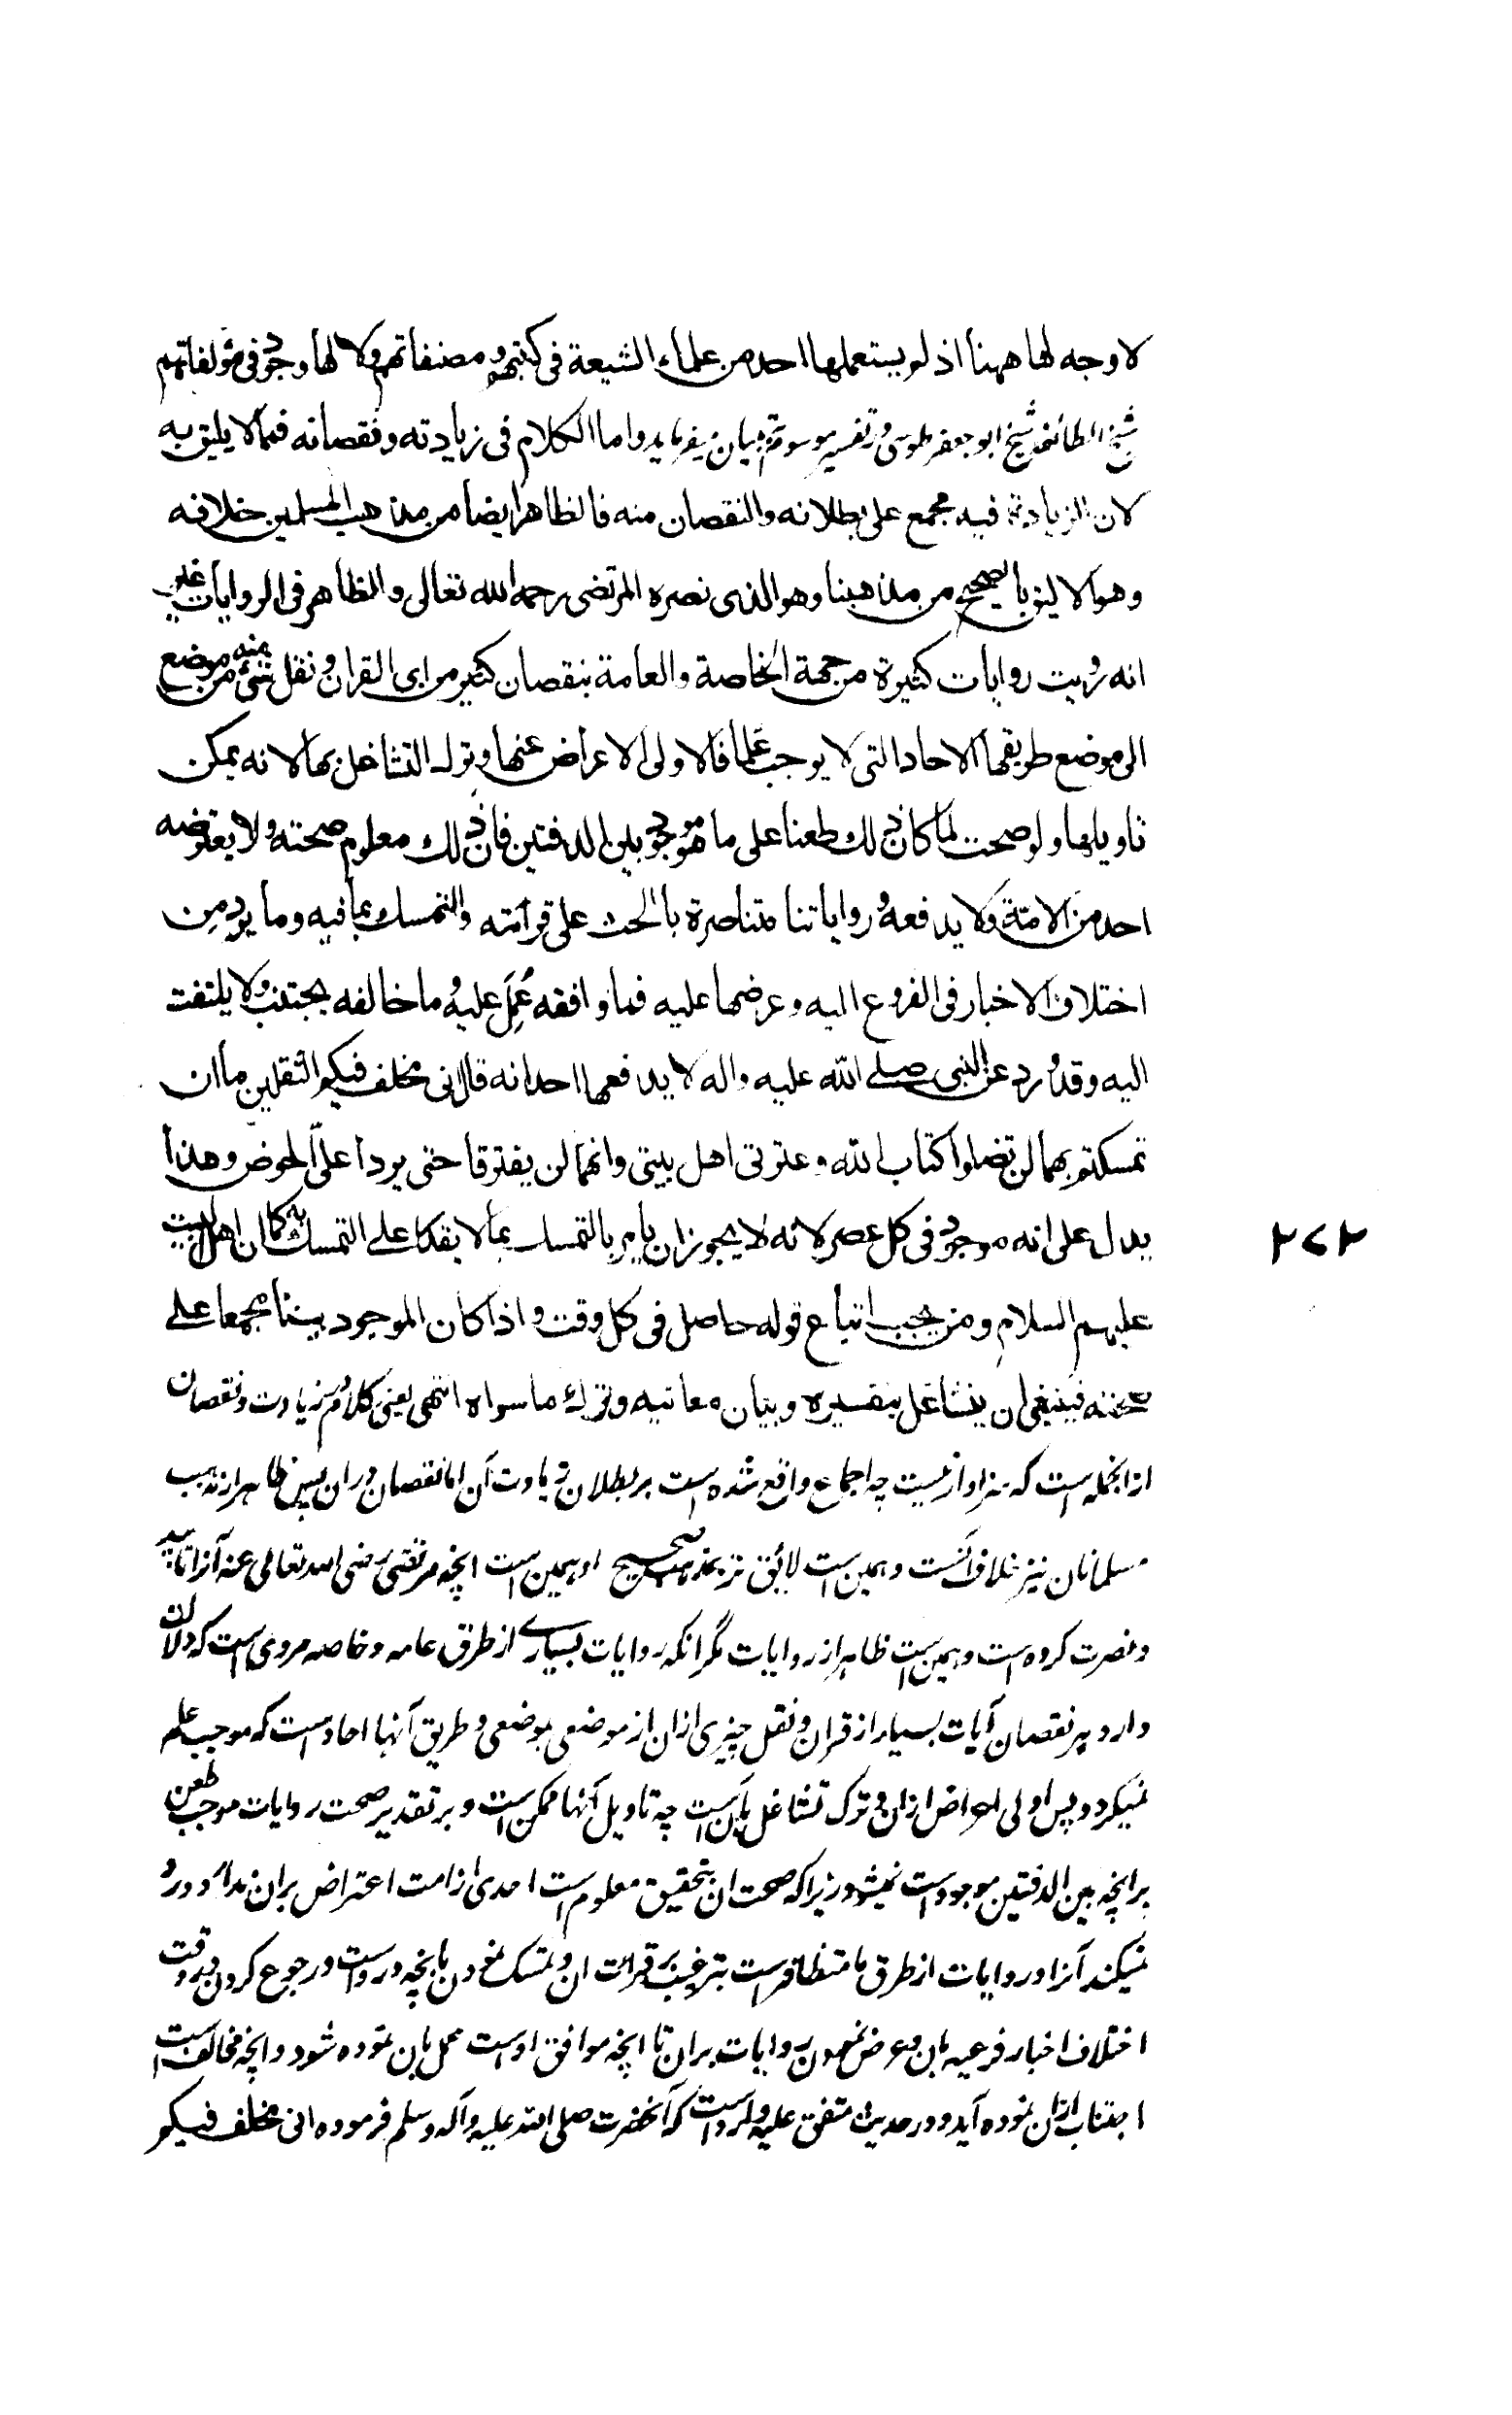 لا وجه لها ههنا اذ لو يستعملها احد من علماء الشيعة فى كتبهم ومصنفاتهم ولا لها وجود فى مؤلفاتهم
شيخ الطائفه شيخ ابو جعفر طوسى در تفسير موسوم به تبيان ميفرمايد واما الكلام فى زيادته ونقصانه فمما لا يليق به
لان الزيادة فيه مجمع على بطلانه والنقصان منه فالظاهر ايضا من مذاهب المسلمين خلافه
وهو الاليق بالصحيح من مذهبنا وهو الذى نصره المرتضى رحمه الله تعالى والظاهر فى الروايات غير
انه رويت روايات كثيرة من جهة الخاصة والعامة بنقصان كثير من اى القران ونقل شئ منه من موضع
الى موضع طريقها الاحاد التى لا يوجب علما فالاولى الاعراض عنها وترك التشاغل بها لانه يمكن
تاويلها ولو صحت لما كان ذلك طعنا على ما هو موجود بين الدفتين فان ذلك معلوم صحته ولا يعترضه
احد من الامة ولا يدفعه ورواياتنا متناصرة بالحث على قرأته والتمسك بما فيه وما يرد من
اختلاف الاخبار فى الفروع اليه وعرضها عليه فما وافقه عمل عليه وما خالفه يجتنب ولا يلتفت
اليه وقد ورد عن النبى صلى الله عليه واله لا يدفعها احد انه قال انى مخلف فيكم الثقلين ما ان
تمسكتم بهما لن تضلوا كتاب الله وعترتى اهل بيتى وانهما لن يفترقا حتى يردا على الحوض وهذا
يدل على انه موجود فى كل عصر لانه لا يجوز ان يامر بالتمسك بما لا يقدر على التمسك به كما ان اهل البيت
۲۷۲
عليهم السلام ومن يجب اتباع قوله حاصل فى كل وقت واذا كان الموجود بيننا مجمعا على
صحته فينبغى ان يتشاغل بتفسيره وبيان معانيه وترك ما سواه انتهى يعنى كلام در زيادت ونقصان
ازانجمله است كه سزاوار نيست چه اجماع واقع شده است بر بطلان زيادت آن اما نقصان دران پس ظاهر از مذهب
مسلمانان نيز خلاف آنست وهمين است لائق تر بمذهب صحيح وهمين است انچه مرتضى رضى الله تعالى عنه آنرا تائيد
ونصرت كرده است وهمين است ظاهر از روايات مگر انكه روايات بسيارے از طرق عامه وخاصه مروى است كه دلالت
دارد بر نقصان آيات بسيار از قران ونقل چيزى ازان از موضعى بموضعى وطريق آنها احاد است كه موجب علم
نميگردد پس اولى اعراض ازان وترك تشاغل بآن است چه تاويل آنها ممكن است وبر تقدير صحت روايات موجب طعن
بر انچه بين الدفتين موجود است نميشود زيرا كه صحت ان بتحقيق معلوم است احدى از امت اعتراض بران ندارد ورد
نميكند آنرا وروايات از طرق ما متظافر است بترغيب بر قرائت ان وتمسك نمودن بانچه در وست ورجوع كردن در وقت
اختلاف اخبار فرعيه بان وعرض نمودن روايات بران تا انچه موافق اوست عمل بان نموده شود وانچه مخالف است
اجتناب ازان نموده آيد ودر حديث متفق عليه وارد است كه آنحضرت صلى الله عليه وآله وسلم فرموده انى مخلف فيكم